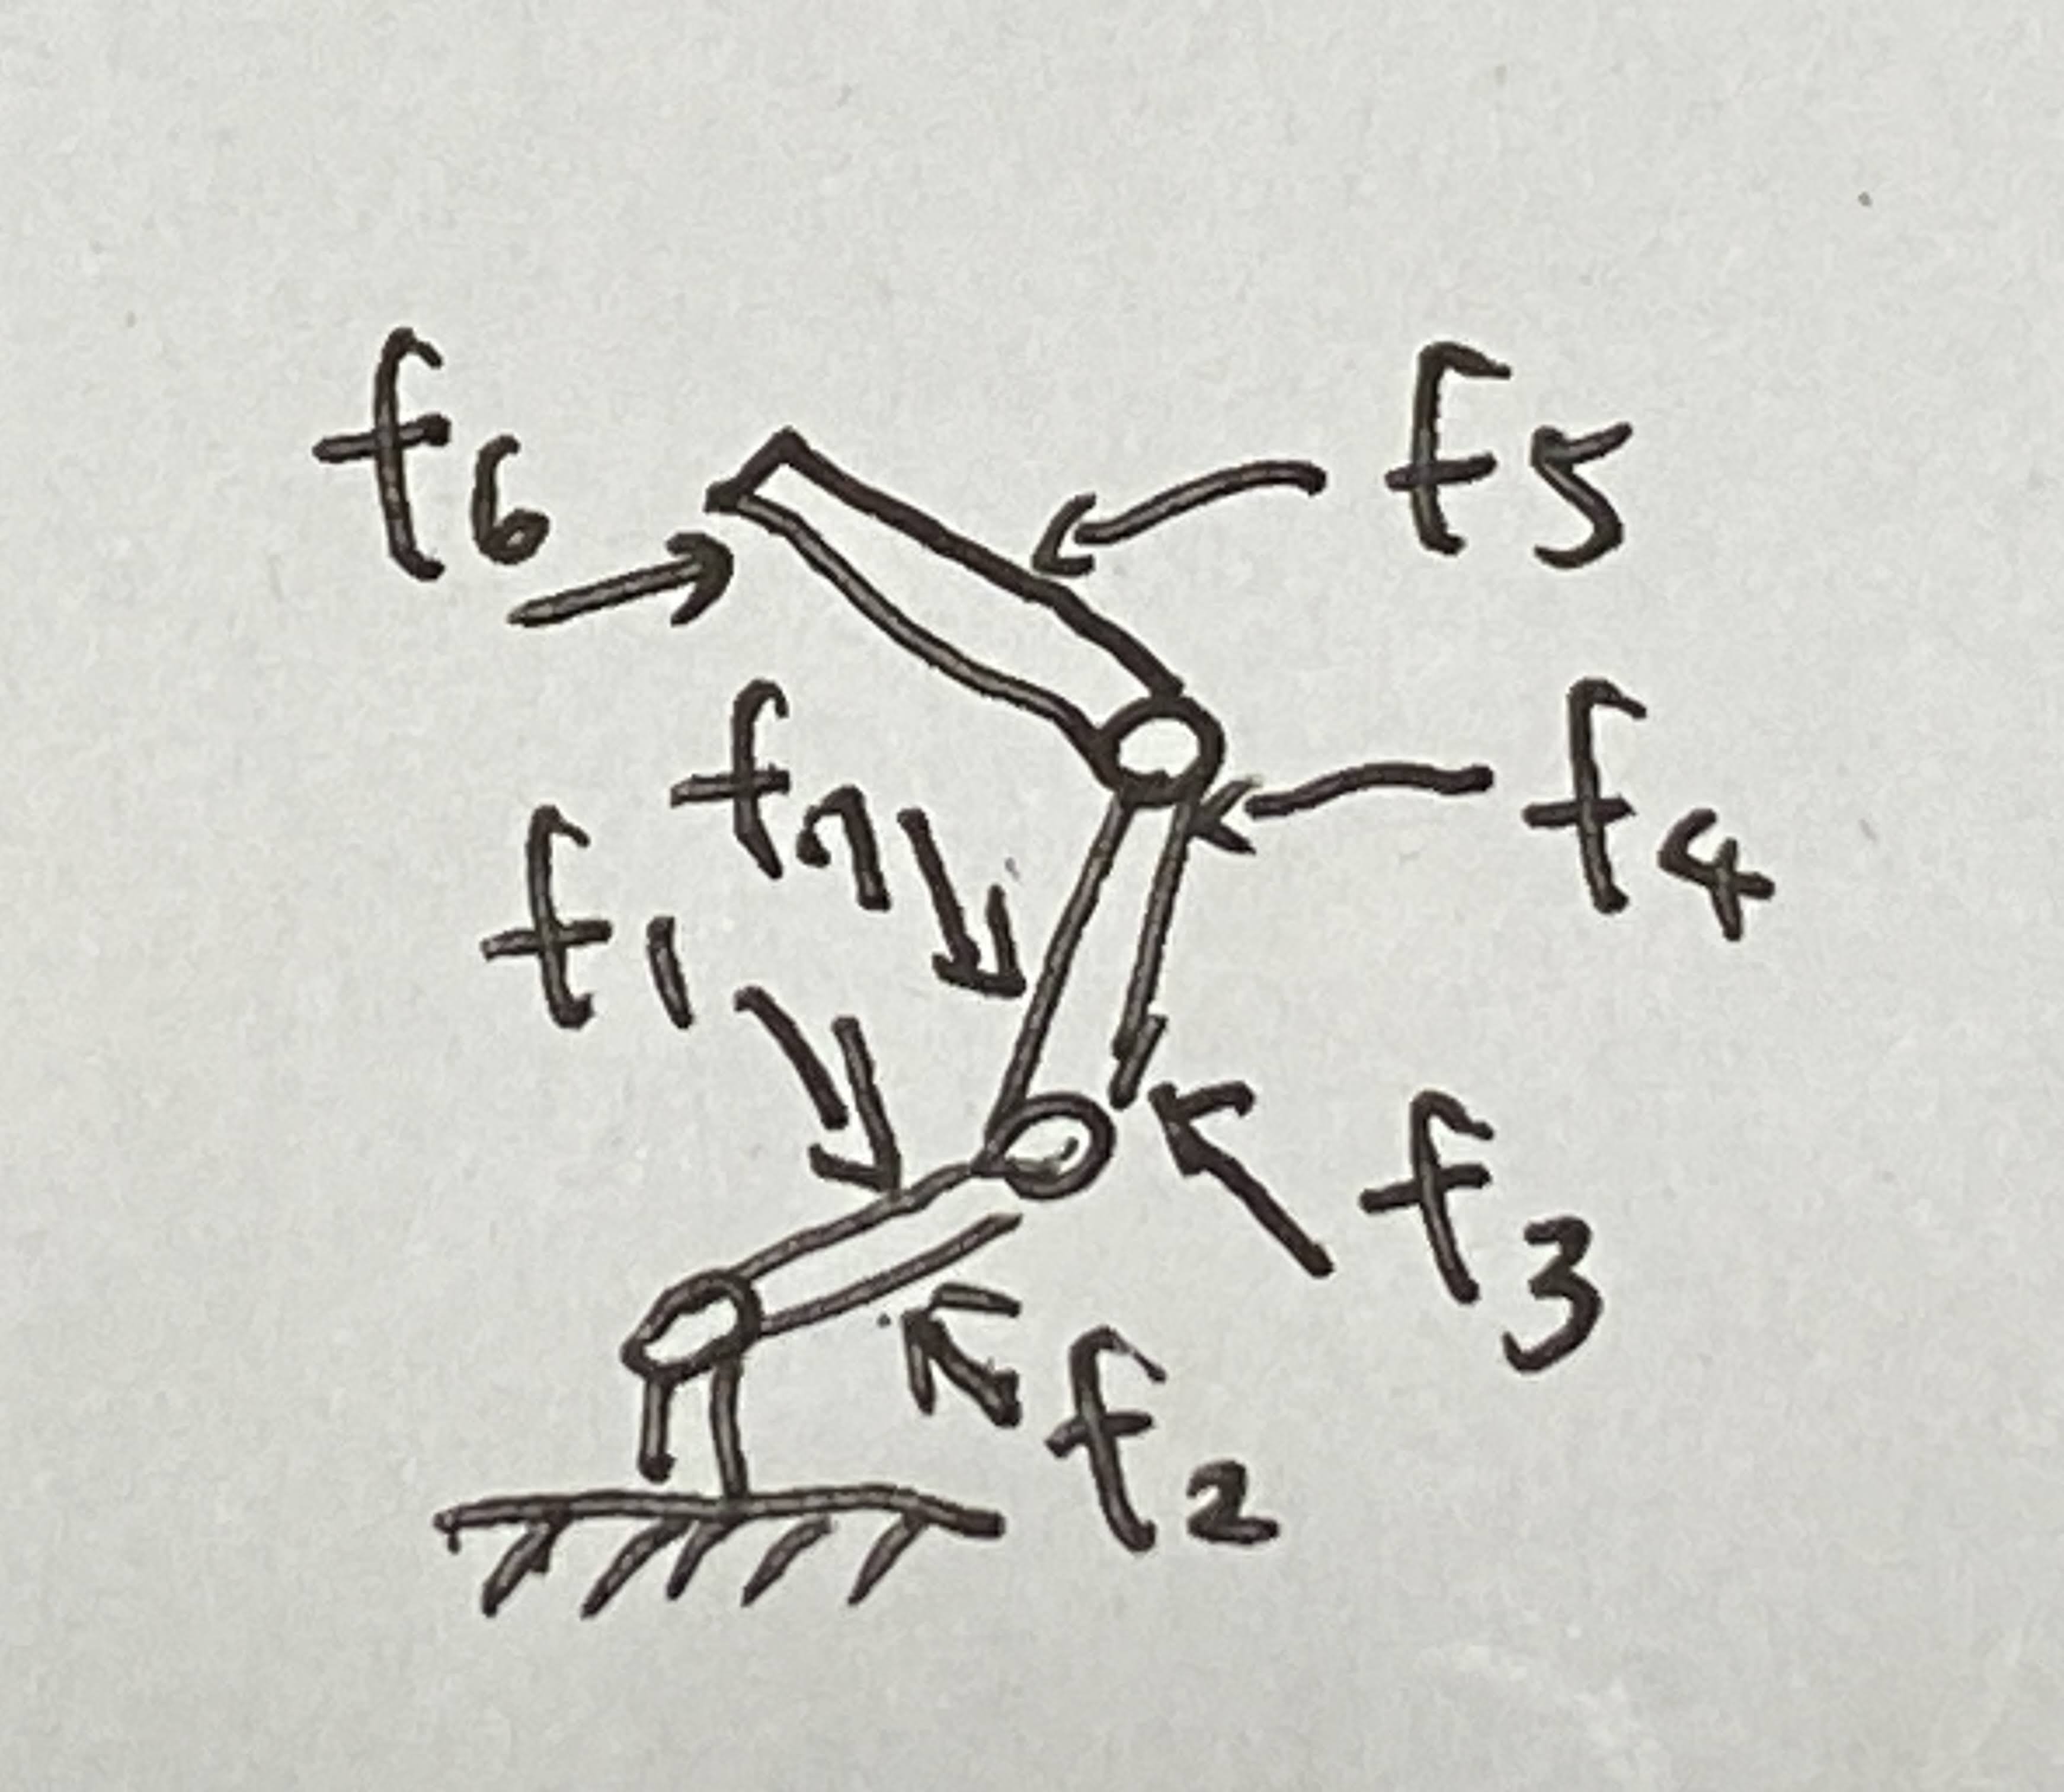 f6
f5
f7
f4
f1
f3
f2